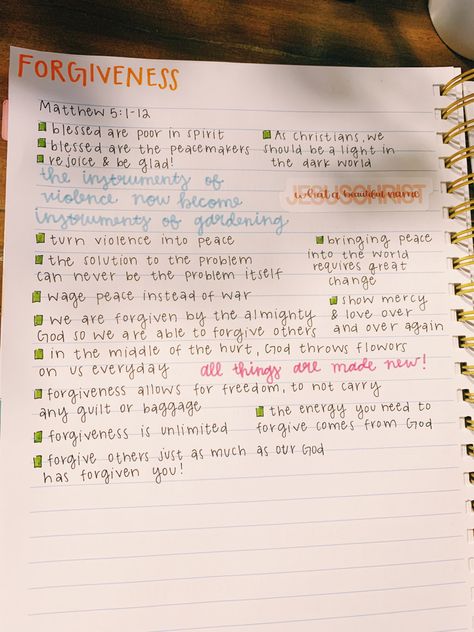 FORGIVENESS
Matthew 5:1-12
blessed are poor in spirit
blessed are the peacemakers
rejoice & be glad!
As Christians, we
should be a light in
the dark world
the instruments of
violence now become
instruments of gardening
JESUS CHRIST
what a beautiful name
turn violence into peace
the solution to the problem
can never be the problem itself
bringing peace
into the world
requires great
change
wage peace instead of war
we are forgiven by the almighty
God so we are able to forgive others
show mercy
& love over
and over again
in the middle of the hurt, God throws flowers
on us everyday
all things are made new!
forgiveness allows for freedom, to not carry
any guilt or baggage
forgiveness is unlimited
the energy you need to
forgive comes from God
forgive others just as much as our God
has forgiven you!